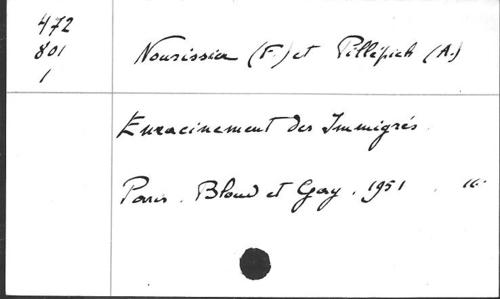 472
801
1
Nourissier (F.) et Pillépich (A.)
Enracinement des Immigrés.
Paris. Bloud et Gay. 1951